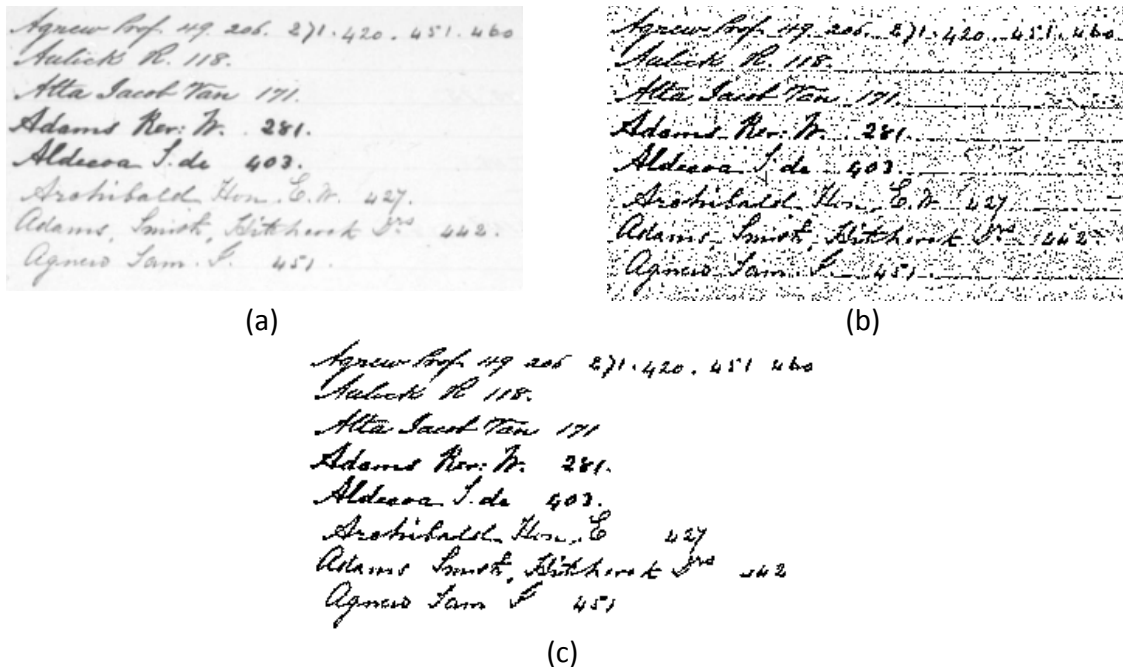 Agnew Prof. 49. 206. 271. 420. 451. 460
Aulick R. 118.
Alta Jacob Tan 171.
Adams Rev: W. 281.
Aldecoa S. de 403.
Archibald Hon. E. W. 427.
Adams, Smith, Hitchcock Drs 442.
Agnew Sam. J. 451.
(a)
Agnew Prof. 49 206. 271. 420. 451. 460
Aulick R. 118.
Alta Jacob Tan 171.
Adams Rev: W. 281.
Aldecoa S. de 403.
Archibald Hon. E. W. 427
Adams Smith, Hitchcock Drs 442.
Agnew Sam J. 451.
(b)
Agnew Prof. 49 206 271. 420. 451 460
Aulick R 118.
Alta Jacob Tan 171
Adams Rev: W. 281.
Aldecoa S. de 403.
Archibald Hon. E 427
Adams Smith, Hitchcock Drs 442
Agnew Sam J 451
(c)